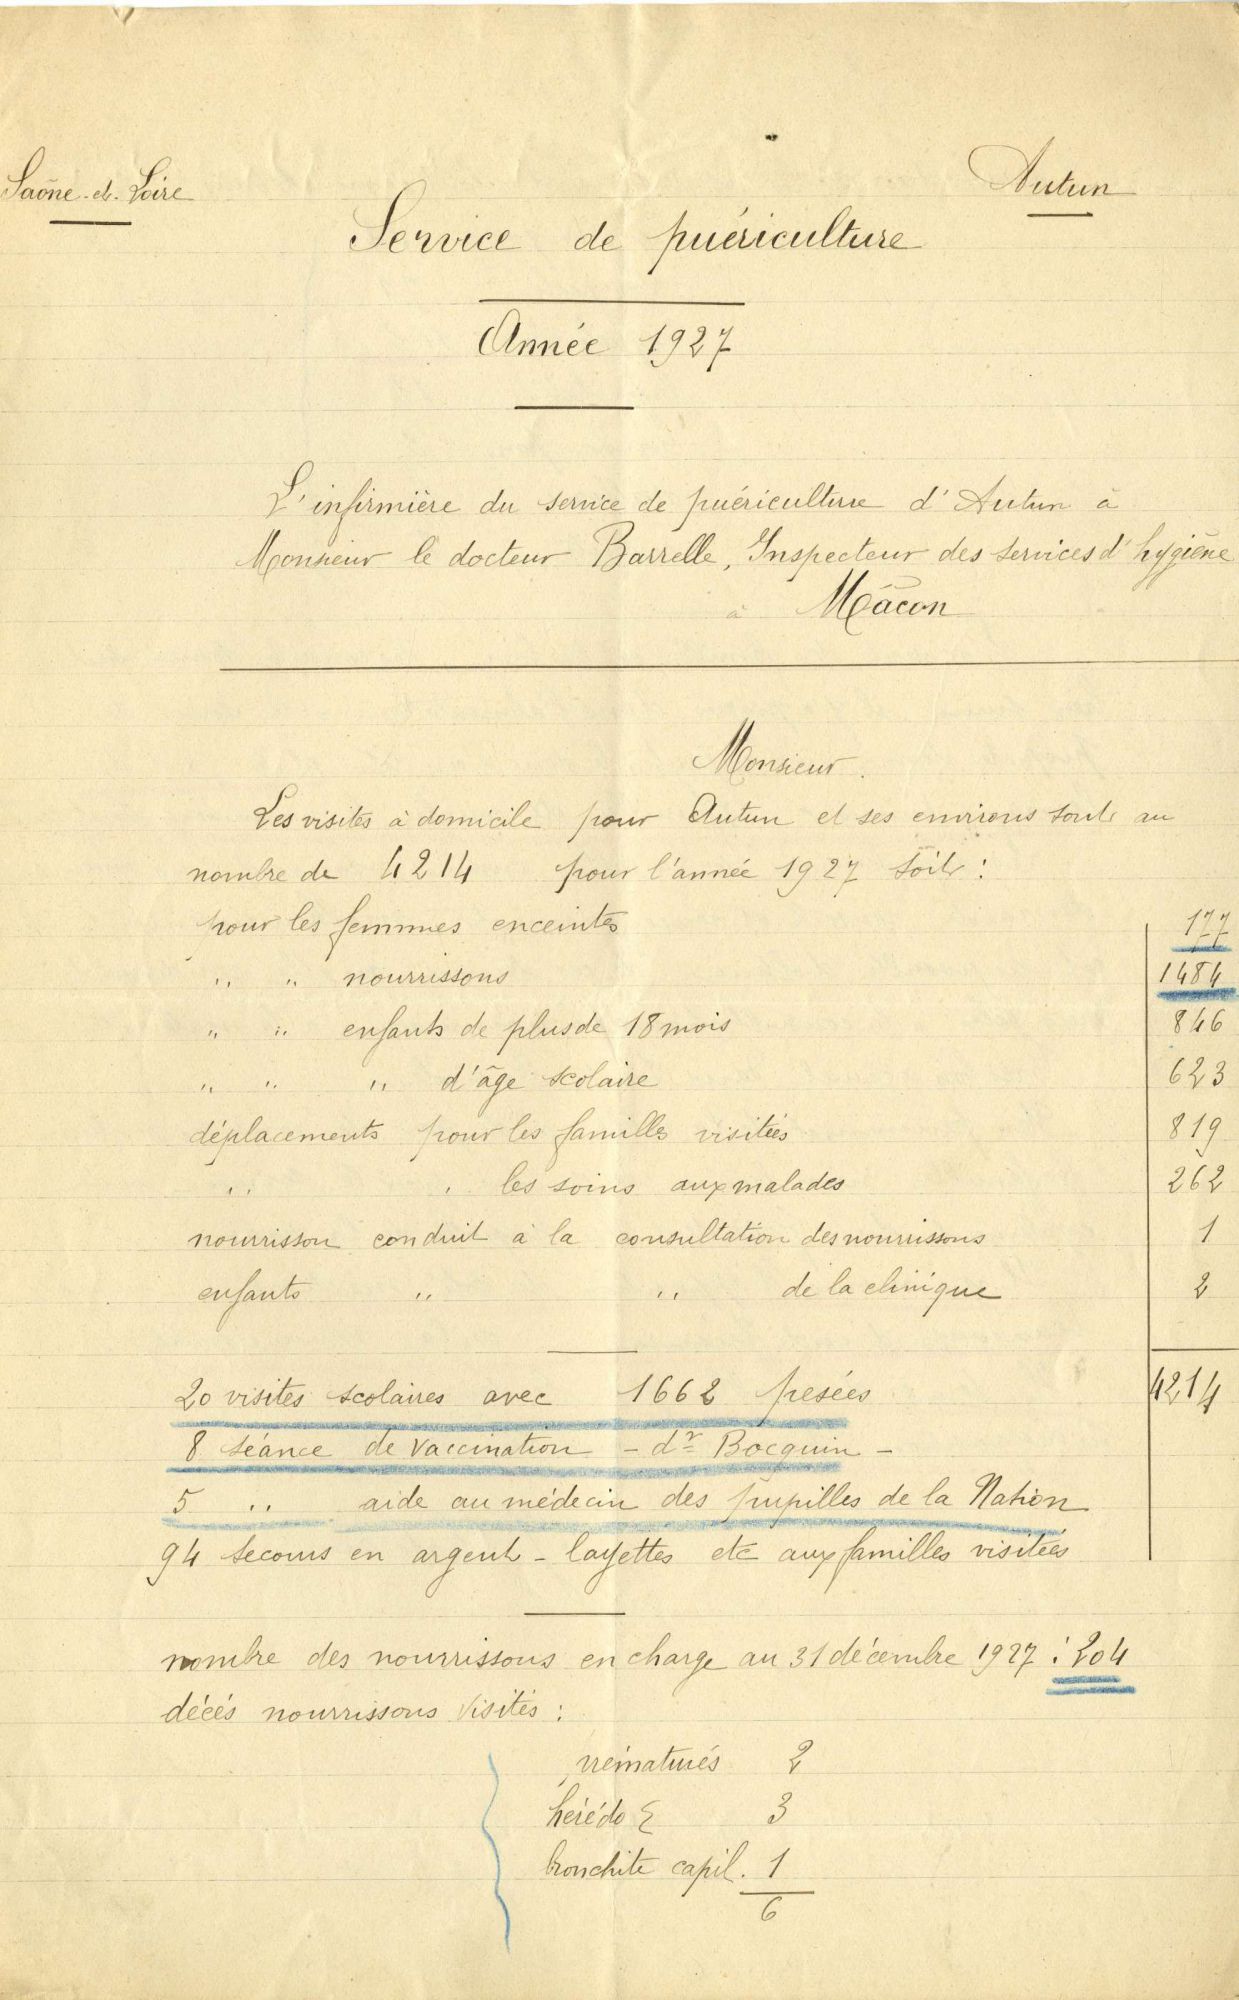 Saône-et-Loire
Autun
Service de puériculture
Année 1927
L'infirmière du service de puériculture d'Autun à
Monsieur le docteur Barrelle, Inspecteur des services d'hygiène
à Mâcon
Monsieur.
Les visites à domicile pour Autun et ses environs sont au
nombre de 4214 pour l'année 1927 soit :
pour les femmes enceintes 177
" " nourrissons 1484
" " enfants de plus de 18 mois 846
" " " d'âge scolaire 623
déplacements pour les familles visitées 819
" " les soins aux malades 262
nourrisson conduit à la consultation des nourrissons 1
enfants " " de la clinique 2
20 visites scolaires avec 1662 pesées 4214
8 séance de vaccination - dr Bocquin -
5 " aide au médecin des pupilles de la Nation
94 secours en argent - layettes etc aux familles visitées
nombre des nourrissons en charge au 31 décembre 1927 : 204
décés nourrissons visités :
prématurés 2
hérédo Σ 3
bronchite capil. 1
6